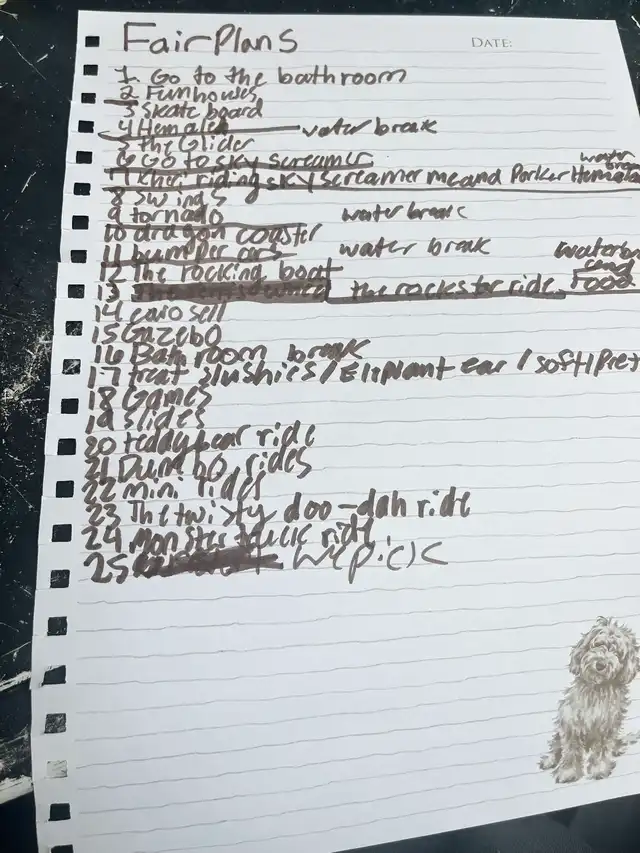 Fair Plans
DATE:
1. Go to the bathroom
2 Funhouses
3 Skate board
4 Hemalea water break
5 the Glider
6 Go to sky screamer
7 Kheri riding sky screamer me and Parker Hemala water brea
8 Swings
9 tornado water break
10 dragon coaster
11 bumper cars water break
12 The rocking boat waterb and Food
13 the rockstar ride
14 carosell
15 Gazebo
16 Bathroom break
17 treat slushies/Eliphant ear/soft Pret
18 Games
19 slides
20 teddy bear ride
21 Dumbo rides
22 mini rides
23 The twisty doo-dah ride
24 Monster truck ride
25